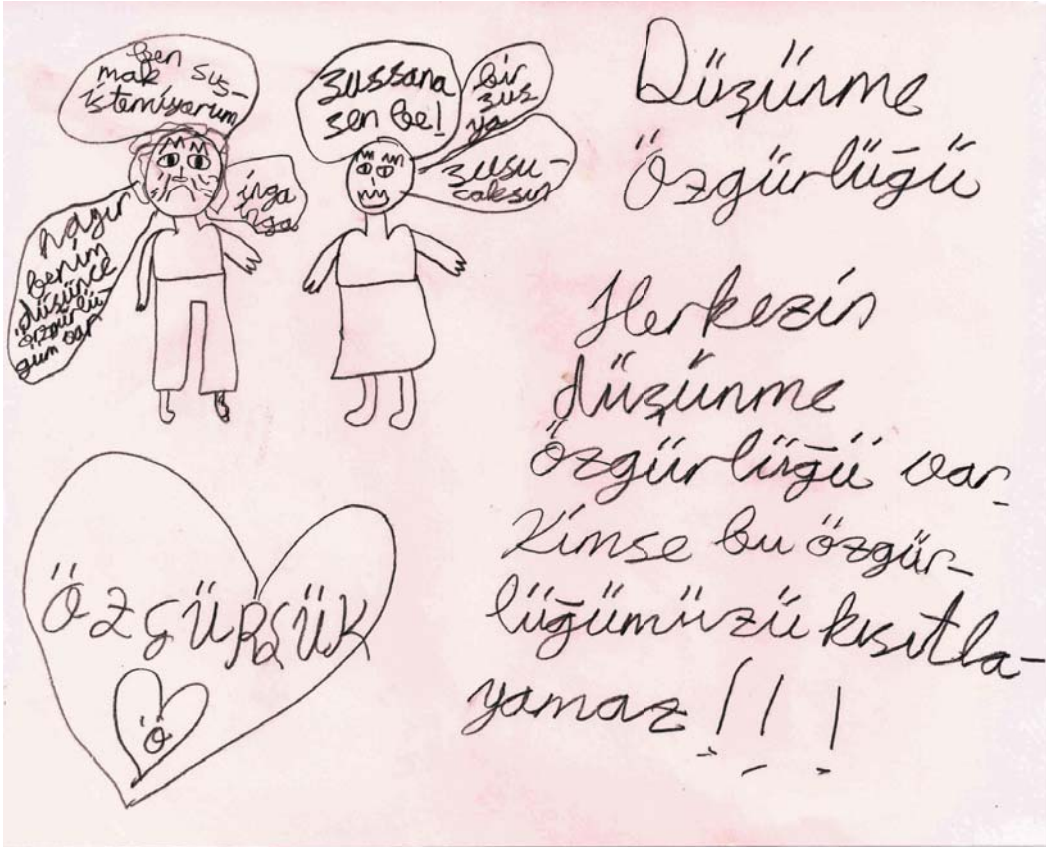 ben sus-
mak
istemiyorum
hayır
benim
düşünce
özgürlü-
ğüm var
ınga
ınga
sussana
sen be!
bir
sus
ya
susu-
caksın
Düşünme
Özgürlüğü
Herkezin
düşünme
özgürlüğü var.
Kimse bu özgür-
lüğümüzü kısıtla-
yamaz!!!
ÖZGÜRLÜK
Ö